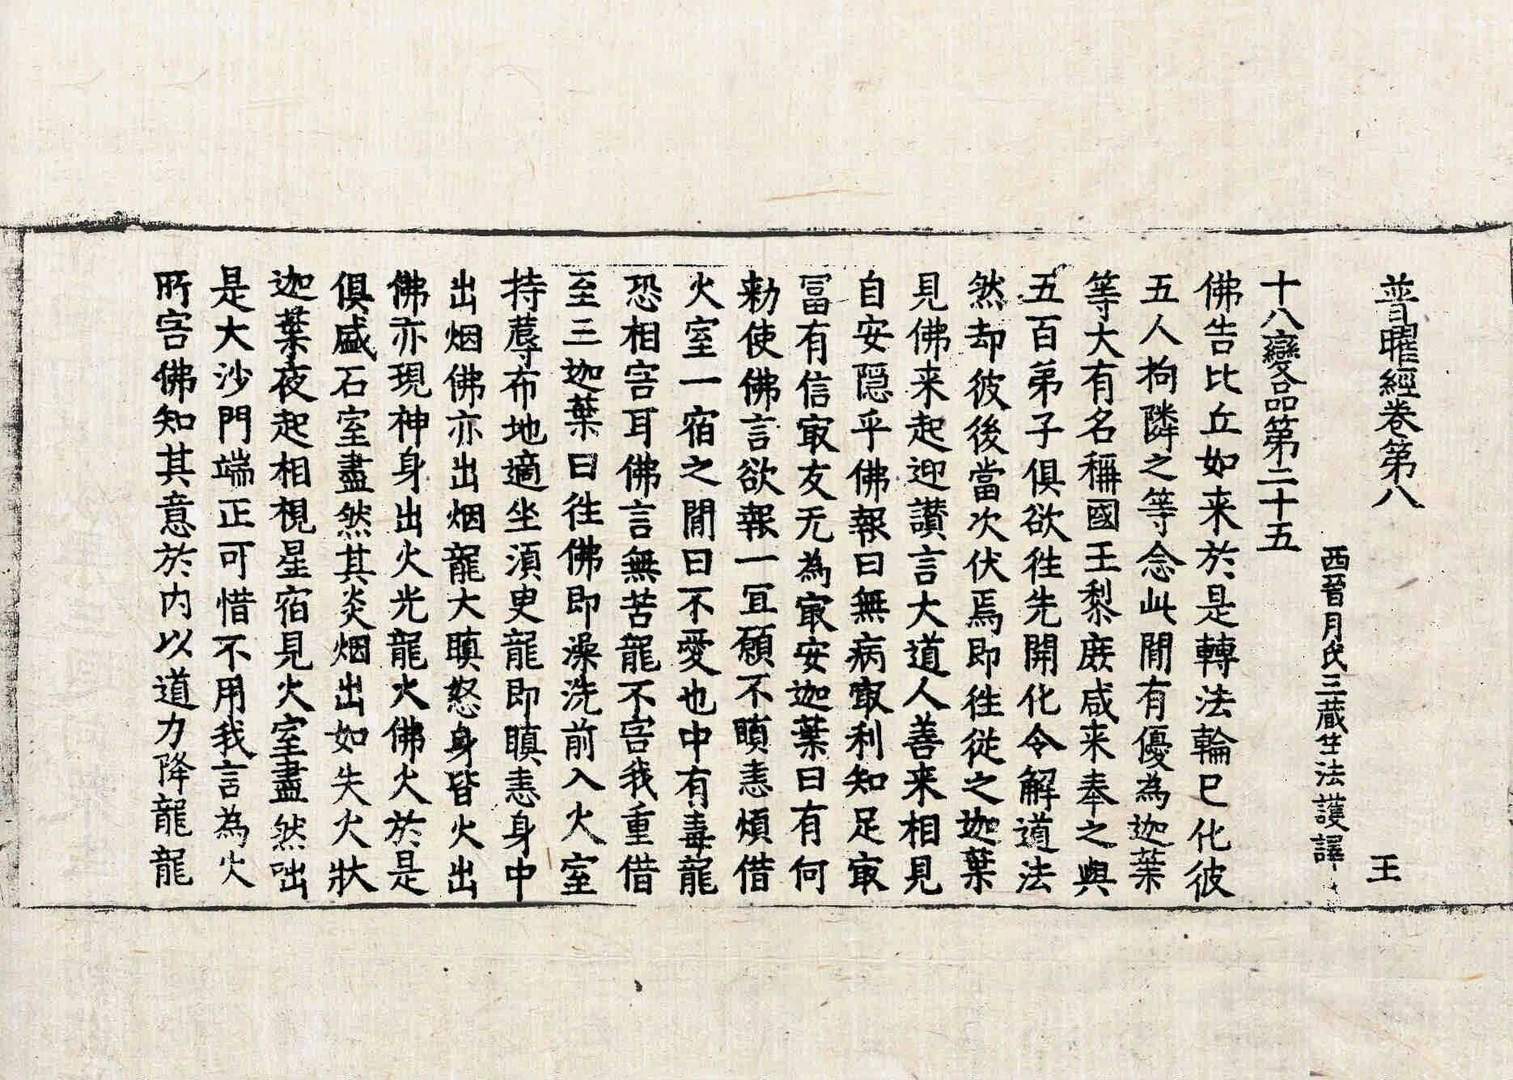 普曜經卷第八 王
西晉月氏三蔵竺法護譯
十八變品第二十五
佛告比丘如来於是轉法輪已化彼
五人拘隣之等念此閒有優為迦葉
等大有名稱國王黎庶咸来奉之與
五百弟子俱欲往先開化令解道法
然却彼後當次伏焉即往從之迦葉
見佛来起迎讃言大道人善来相見
自安隠乎佛報曰無病㝡利知足㝡
冨有信㝡友无為㝡安迦葉曰有何
勑使佛言欲報一冝願不瞋恚煩借
火室一宿之閒曰不愛也中有毒龍
恐相害耳佛言無苦龍不害我重借
至三迦葉曰往佛即澡洗前入火室
持蓐布地適坐湏臾龍即瞋恚身中
出烟佛亦出烟龍大瞋怒身皆火出
佛亦現神身出火光龍火佛火於是
俱盛石室盡然其炎烟出如失火狀
迦葉夜起相視星宿見火室盡然咄
是大沙門端正可惜不用我言為火
所害佛知其意於内以道力降龍龍